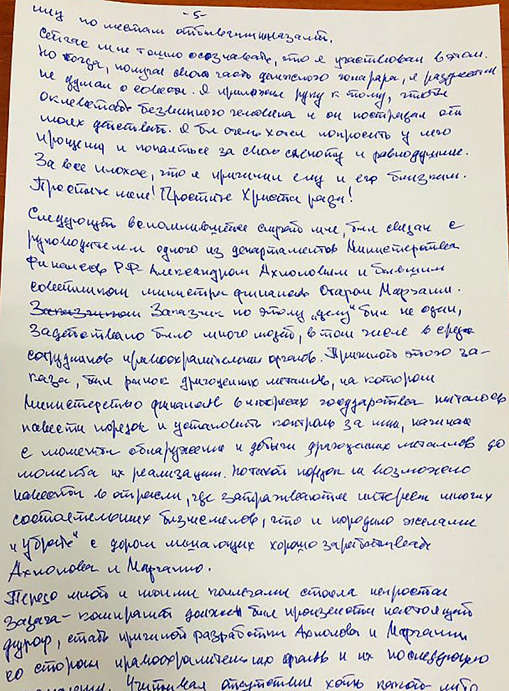 - 5 -
ниц по местам отбывания наказания.
Сейчас мне тошно осознавать, что я участвовал в этом.
Но тогда, получая свою часть денежного гонорара, я раздумал
не думал о совести. Я приложил руку к тому, чтобы
оклеветать безвинного человека и он пострадал от
моих действий. Я бы очень хотел попросить у него
прощения и покаяться за свою слепоту и равнодушие.
За все плохое, что я причинил ему и его близким.
Простите меня! Простите Христа ради!
Следующий вспомнившийся случай мне, был связан с
руководителем одного из департаментов Министерства
Финансов РФ Александром Ахполовым и бывшим
советником министра финансов Отаром Маргания.
Заказчиком Заказчик по этому "делу" был не один,
задействовано было много людей, в том числе в среде
сотрудников правоохранительных органов. Причиной этого за-
каза, был рынок драгоценных металлов, на котором
Министерство финансов в интересах государства пыталось
навести порядок и установить контроль за ним, начиная
с момента обнаружения и добычи драгоценных металлов до
момента их реализации. Но такой порядок не возможно
навести в отрасли, где затрагиваются интересы многих
состоятельных бизнесменов, что и породило желание
"убрать" с дороги мешающих хорошо зарабатывать
Ахполова и Маргания.
Передо мной и моими коллегами стояла непростая
задача - компромат должен был произвести настоящий
фурор, стать причиной разработки Ахполова и Маргании
со стороны правоохранительных органов и их последующего
Учитывая отсутствие хоть какого либо